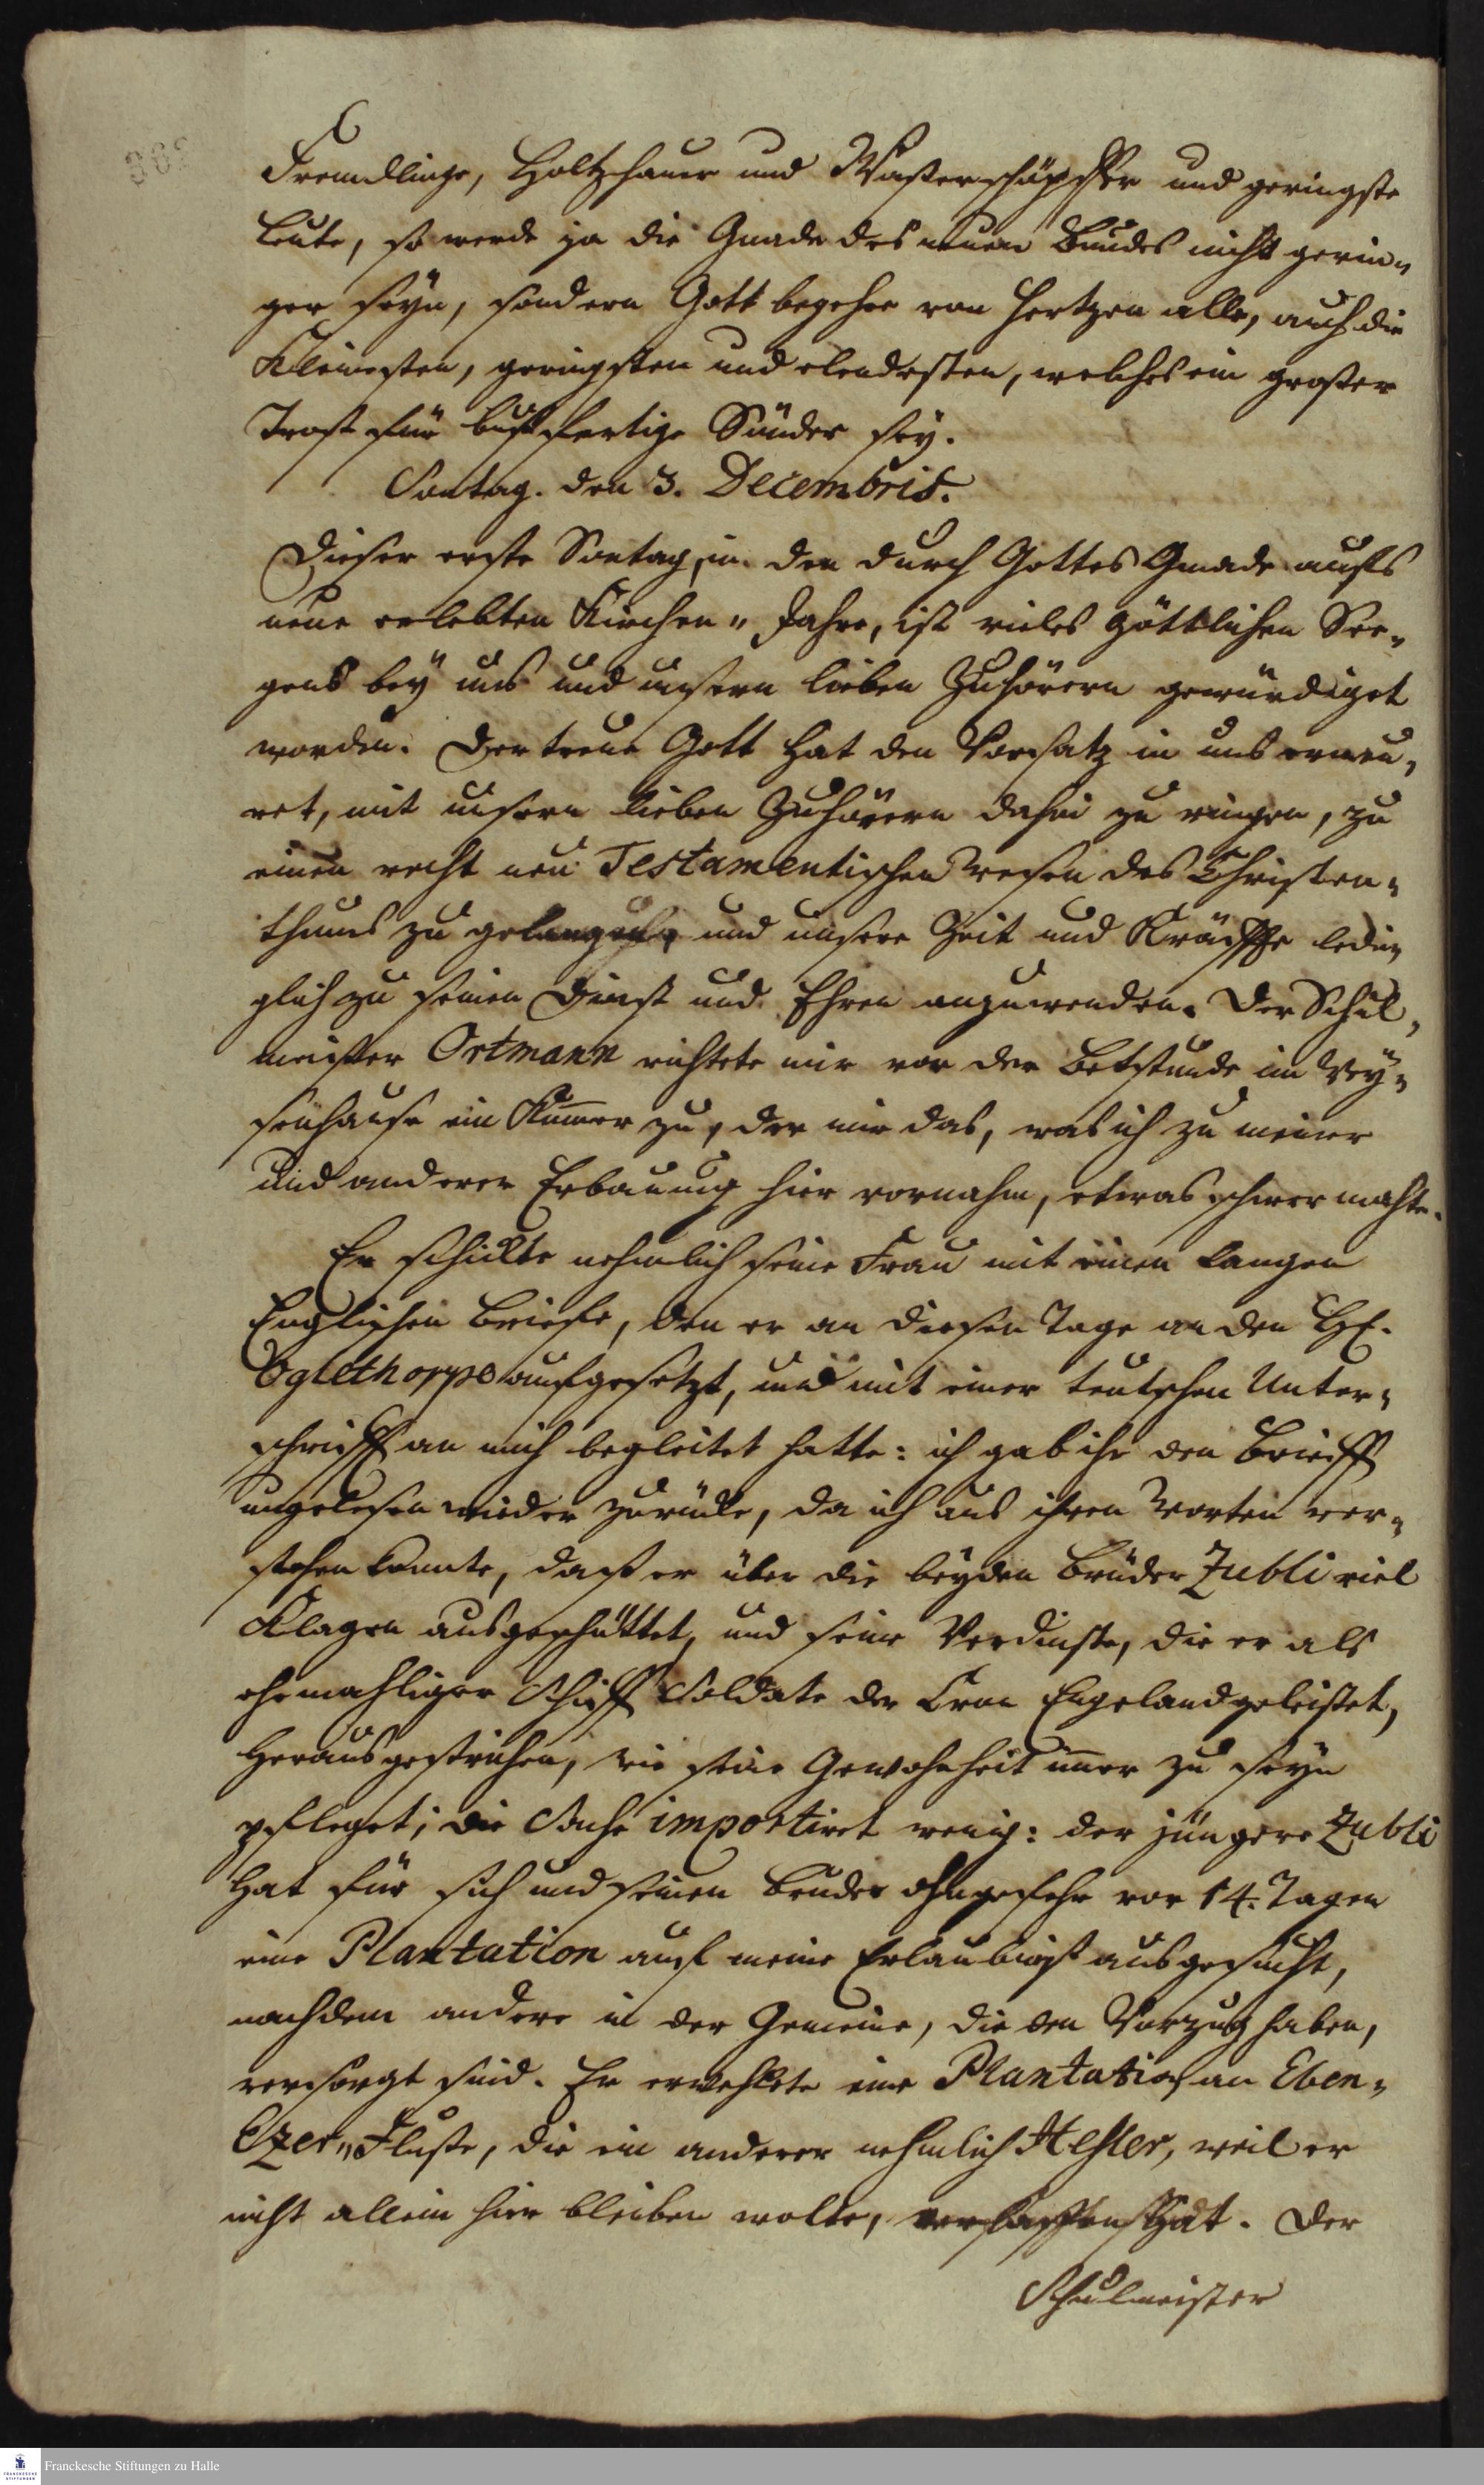 Fremdlinge, Holtzhauer und Waßerschöpffer und geringste
Leute, so werde ja die Gnade des neuen Bundes nicht gerin„
ger seyn, sondern Gott begehre von Hertzen alle, auch die
Kleinesten, geringsten und elendesten, welches ein großer
Trost für bußfertige Sünder sey.
Sontag. den 3. Decembris.
Dieser erste Sontag, in den durch Gottes Gnade aufs
neue erlebten Kirchen„ Jahre, ist vieles göttlichen See„
gens bey uns und unsern lieben Zuhörern gewürdiget
worden. Der treue Gott hat den Vorsatz in uns erneu„
ret, mit unsern lieben Zuhörern dahin zu ringen, zu
einen recht neu Testamentischen Wesen des Christen„
thums zu gelangen, und unsere Zeit und Kräffte ledi„
glich zu seinen Dienst und Ehren anzuwenden. Der Schul„
meister Ortmann richtete mir vor der Betstunde im Wey„
senhause ein Kummer zu, der mir das, was ich zu meiner
und anderer Erbauung hier vornahm, etwas schwer machte.
Er schickte nehmlich seine Frau mit einen langen
Englischen Briefe, den er an diesen Tage an den H.
Oglethorpe aufgesetzt, und mit einer teutschen Unter„
schrifft an mich begleitet hatte: ich gab ihr den Brieff
ungelesen wieder zurücke, da ich aus ihren Worten ver„
stehen konnte, daß er über die beyden Brüder Zubli viel
Klagen ausgeschüttet, und seine Verdinste, die er als
ehemahliger Schiff Soldate der Cron Engeland geleistet,
herausgestrichen, wie seine Gewohnheit im̅er zu seyn
pfleget; die Sache importiret wenig: der jüngere Zubli
hat für sich und seinen Bruder ohngefehr vor 14. Tagen
eine Plantation auf meine Erlaubniß ausgesucht,
nachdem andere in der Gemeine, die den Vorzug haben,
versorgt sind. Er erwehlete eine Plantation an Eben„
Ezer„ Fluße, die ein anderer nehmlich Heßler, weil er
nicht allein hier bleiben wolte, verlassen hat. Der
Schulmeister
Franckesche Stiftungen zu Halle